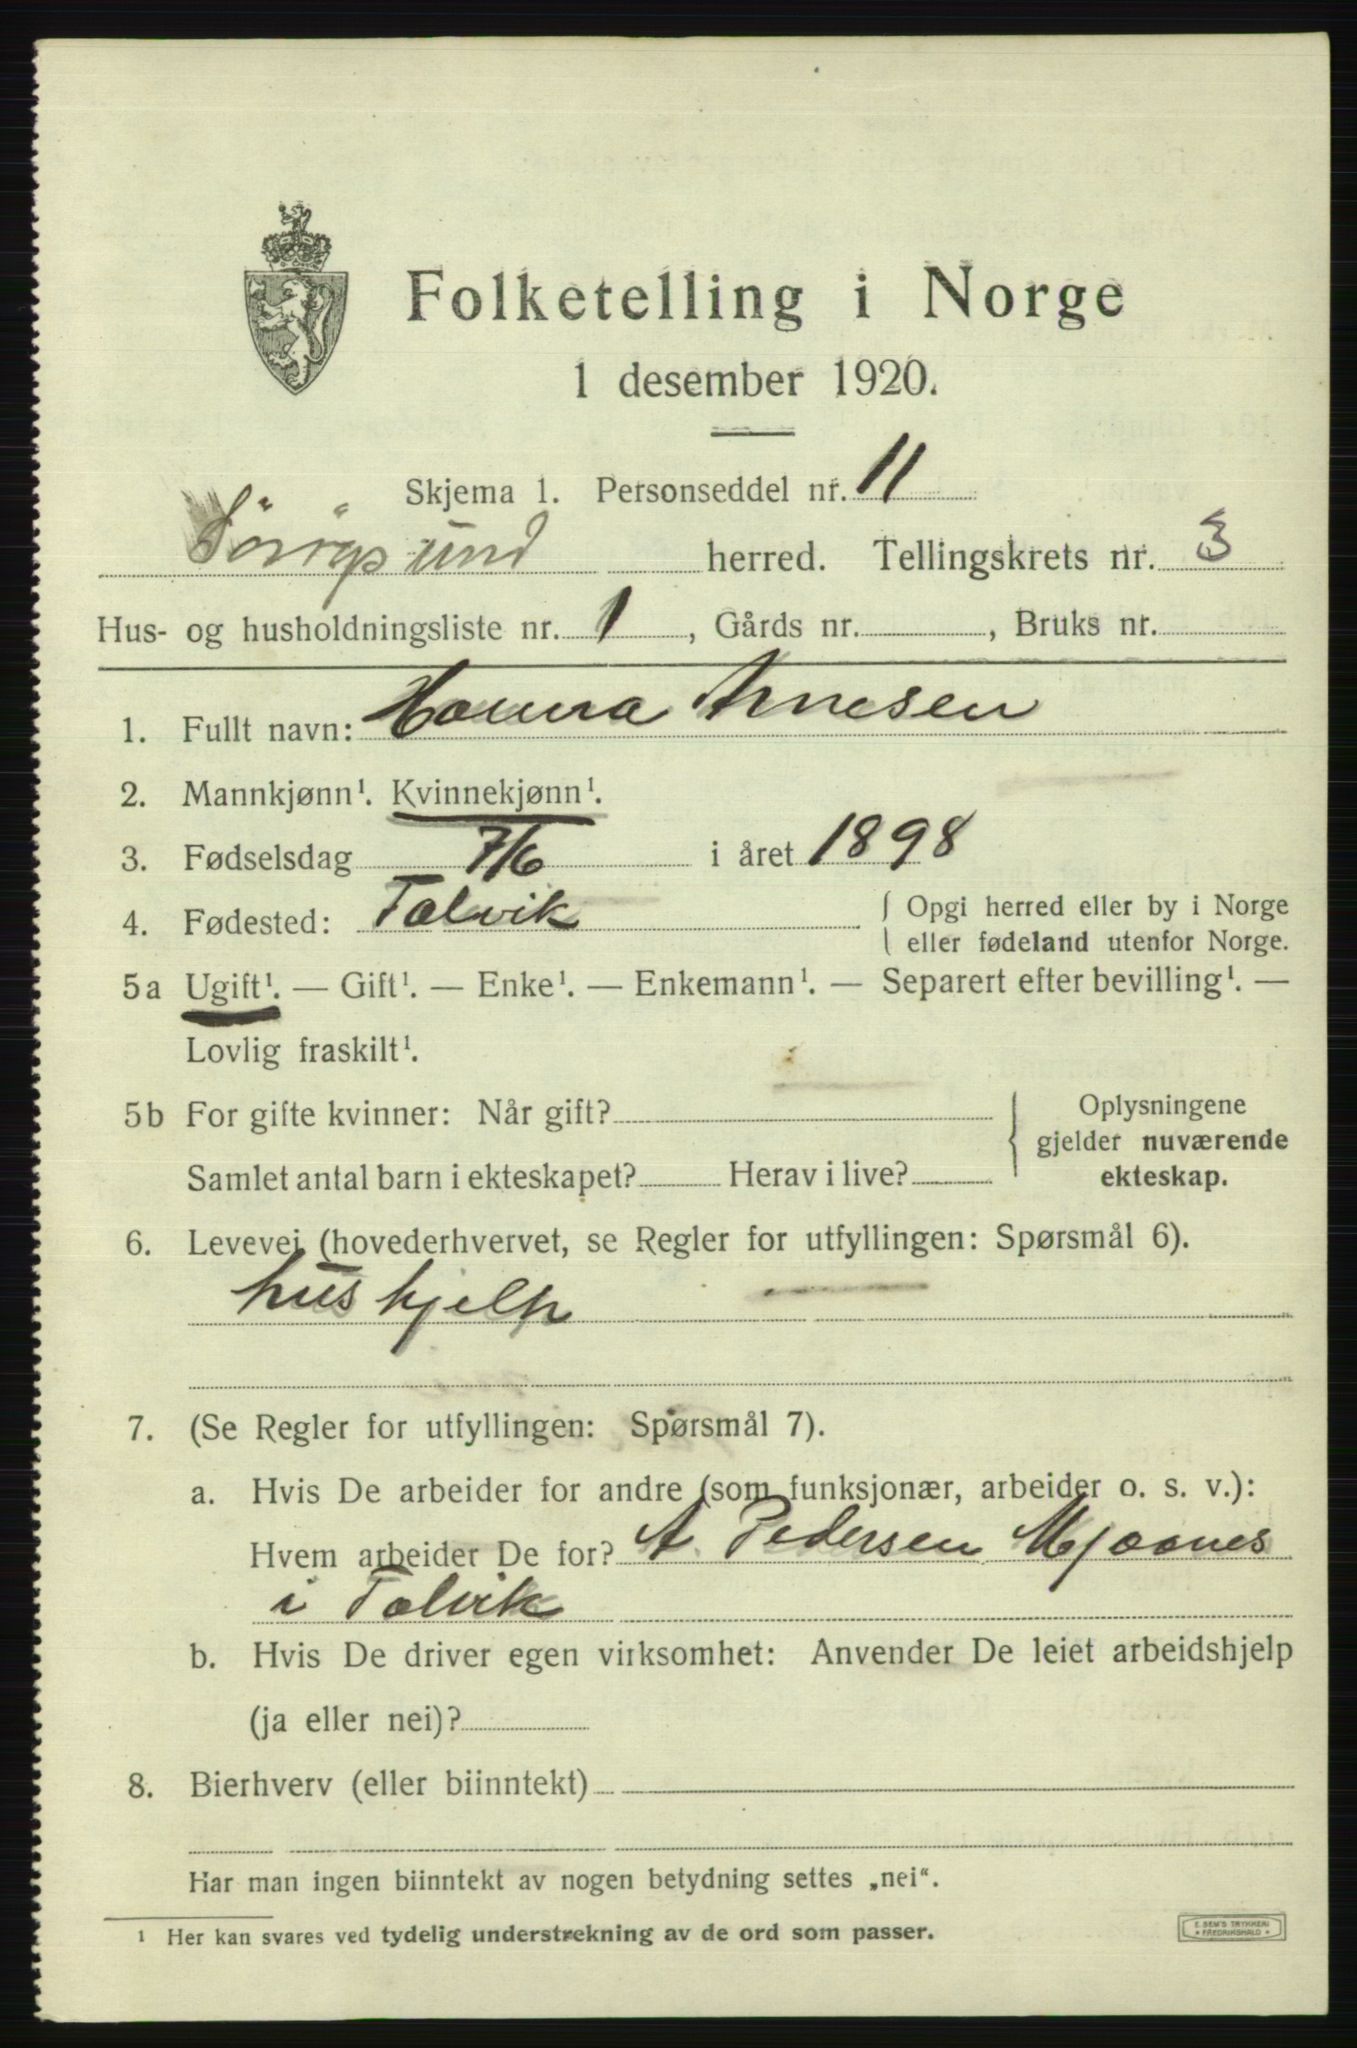 Folketelling i Norge
1 desember 1920.
Skjema 1. Personseddel nr. 11
Sörøysund herred. Tellingskrets nr. 3
Hus- og husholdningsliste nr. 1, Gårds nr. , Bruks nr.
1. Fullt navn: Hanna Arnesen
2. Mannkjønn¹. Kvinnekjønn¹.
3. Fødselsdag 7/6 i året 1898
4. Fødested: Talvik { Opgi herred eller by i Norge
eller fødeland utenfor Norge.
5a Ugift¹. — Gift¹. — Enke¹. — Enkemann¹. — Separert efter bevilling¹. —
Lovlig fraskilt¹.
5b For gifte kvinner: Når gift? { Oplysningene
gjelder nuværende
Samlet antal barn i ekteskapet? Herav i live? ekteskap.
6. Levevei (hovederhvervet, se Regler for utfyllingen: Spørsmål 6).
hushjelp
7. (Se Regler for utfyllingen: Spørsmål 7).
a. Hvis De arbeider for andre (som funksjonær, arbeider o. s. v.):
Hvem arbeider De for? A. Pedersen Mjaanes
i Talvik
b. Hvis De driver egen virksomhet: Anvender De leiet arbeidshjelp
(ja eller nei)?
8. Bierhverv (eller biinntekt)
Har man ingen biinntekt av nogen betydning settes „nei“.
¹ Her kan svares ved tydelig understrekning av de ord som passer.
E. SEM'S TRYKKERI
FREDRIKSHALD